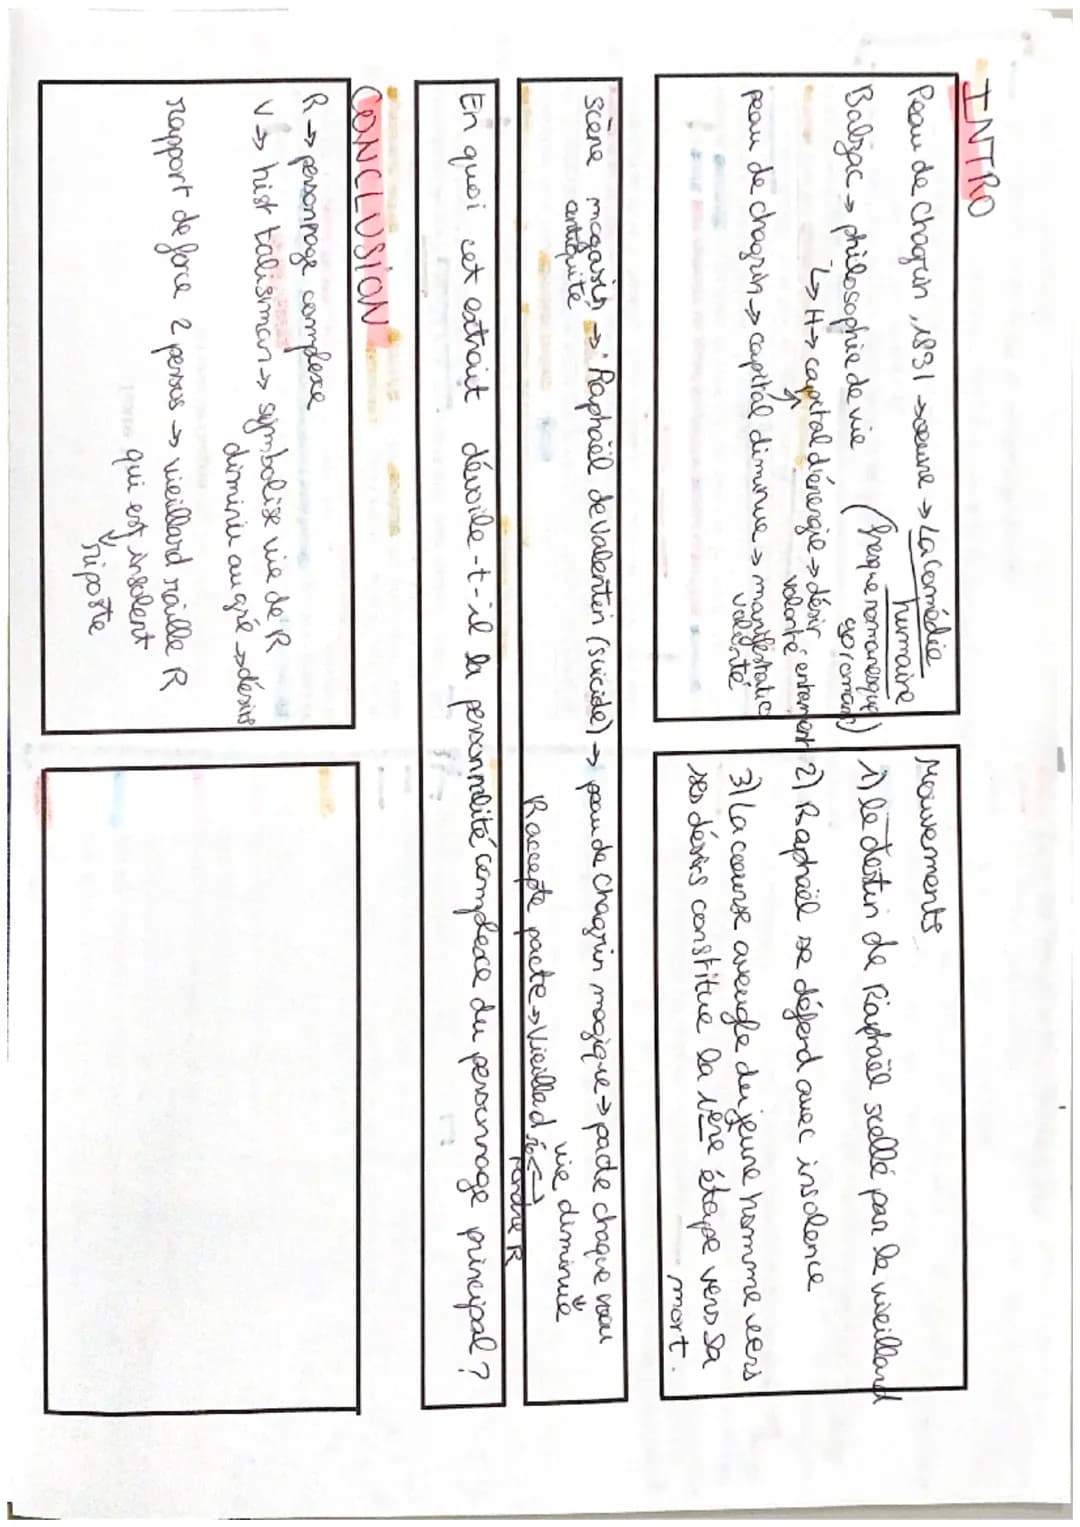 INTRO
Peau de Chagrin, 1831 → œuvre → La Comédie
humaine
(fresque romanesque)
90 romans
Balzac → philosophie de vie
↳ H → capital d'énergie → désir
volonté entament
peau de chagrin → capital diminue → manifestatio
volonté
Mouvements
1) le destin de Raphaël scellé par le vieillard
2) Raphaël se défend avec insolence
3) La course aveugle du jeune homme vers
ses désirs constitue la 1ère étape vers sa
mort.
scène magasin → Raphaël de Valentin (suicide) → peau de chagrin magique → pacte chaque vœu
antiquité
vie diminue
R accepte pacte → Vieillard
rendre R
En quoi cet extrait dévoile-t-il la personnalité complexe du personnage principal ?
CONCLUSION
R → personnage complexe
V → hist talisman → symbolise vie de R
diminue au gré → désirs
rapport de force 2 persos → vieillard raille R
qui est insolent
↓
riposte